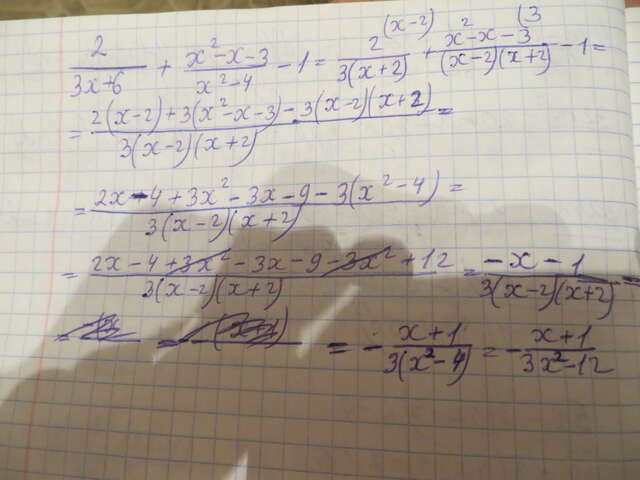 2/(3x+6) + (x²-x-3)/(x²-4) - 1 = 2^(x-2)/(3(x+2)) + (x²-x-3^(3)/((x-2)(x+2)) - 1 =
= (2(x-2)+3(x²-x-3)-3(x-2)(x+2))/(3(x-2)(x+2)) =
= (2x-4+3x²-3x-9-3(x²-4))/(3(x-2)(x+2)) =
= (2x-4+3x²-3x-9-3x²+12)/(3(x-2)(x+2)) = (-x-1)/(3(x-2)(x+2)) =
= - (x+1)/(3(x²-4)) = - (x+1)/(3x²-12)